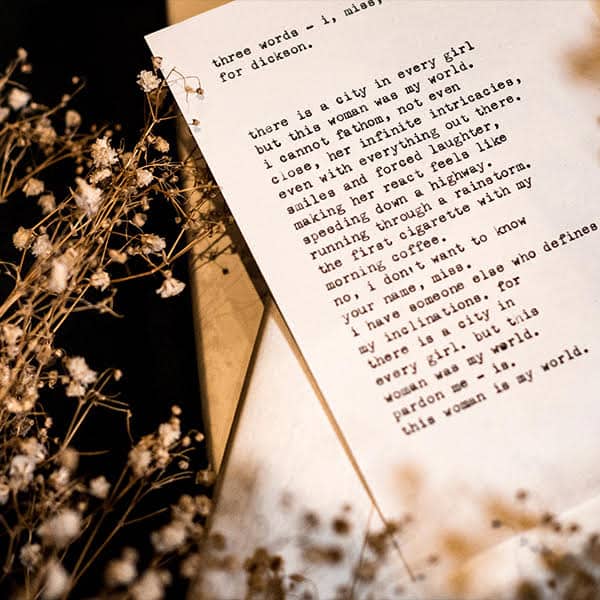 three words - i, miss,
for dickson.
there is a city in every girl
but this woman was my world.
i cannot fathom, not even
close, her infinite intricacies,
even with everything out there.
smiles and forced laughter,
making her react feels like
speeding down a highway.
running through a rainstorm.
the first cigarette with my
morning coffee.
no, i don't want to know
your name, miss.
i have someone else who defines
my inclinations. for
there is a city in
every girl. but this
woman was my world.
pardon me - is.
this woman is my world.